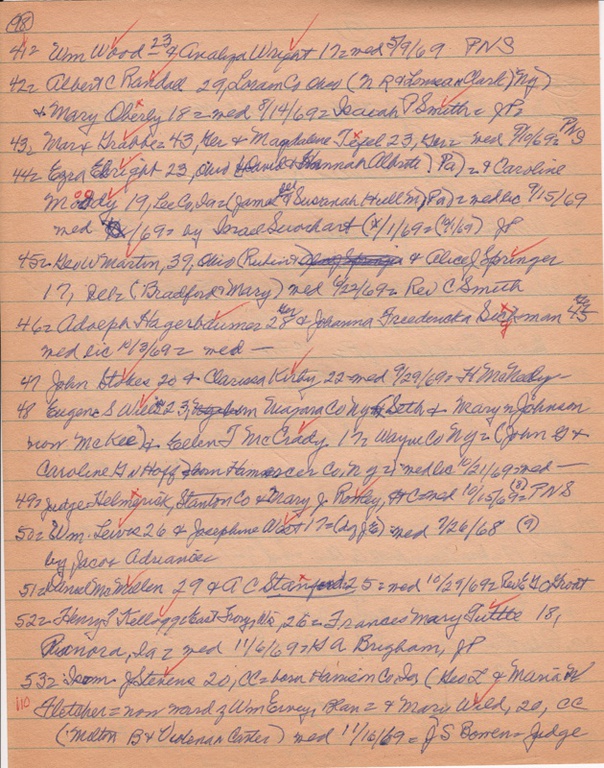 98
41= Wm Wood 23 & Analiza Wright 17= med 5/9/69 PNS
42= Albert C Randal 29, Lorain Co Ohio (N R & Louisa Clark) Ny)
& Mary Oberly 18= med 8/14/69= Isaiah P Smith= JP=
43= Marx Grabbe= 43, Ger & Magdalene Texel 23, Ger= med 9/9/69= PNS
44= Ezra Ebright 23, Ohio (David & Hannah Albott) Pa)= & Caroline
Moody 19, Lee Co, Ia= (James & Susanah Hull M, Pa)= med lic 9/15/69
med /69= by Israel Swihart (4/1/69= (9/69) JP
45= Geo W Martin, 39, Ohio (Rubin & & Alice J Springer
17, (Bradford & Mary) med 6/22/69= Rev C Smith
46= Adolph Hagerbaumer 28 Ger & Johanna Freedericka man 45 Ger
med lic 10/3/69= med —
47 John Stokes 20 & Clarissa Kirby, 22= med 9/29/69= H
48 Eugene S 23, Niagara Co Ny (Seth & Mary n Johnson
now McKee) & Ellen T McCrady 17= Wayne Co Ny= (John G &
Caroline G V Hoff) Co, Ny=) med lic 10/21/69= med —
49= Judge= Helmerick, Stanton Co & Mary J. Rowley, C= med 10/15/69= (8) PNS
50= Wm. Lewis 26 & Josephine West 17= med 7/26/68 (9)
by Jacob Adriance
51= Daniel McMillen 29 & A C Stanford 25= med 10/29/69= Rev E G
52= Henry P Kellogg= East Troy, Wis, 26= & Frances Mary Tuttle 18,
Panora, Ia= med 11/6/69= H A Brigham, JP
53= Isom J Stevens 20, CC= born Harrison Co, Ia, (Geo L & Maria N
110 Fletcher= now ward of Wm & Mary Wild, 20, CC
(Milton B & Carter) med 11/16/69= J S Bowen= Judge